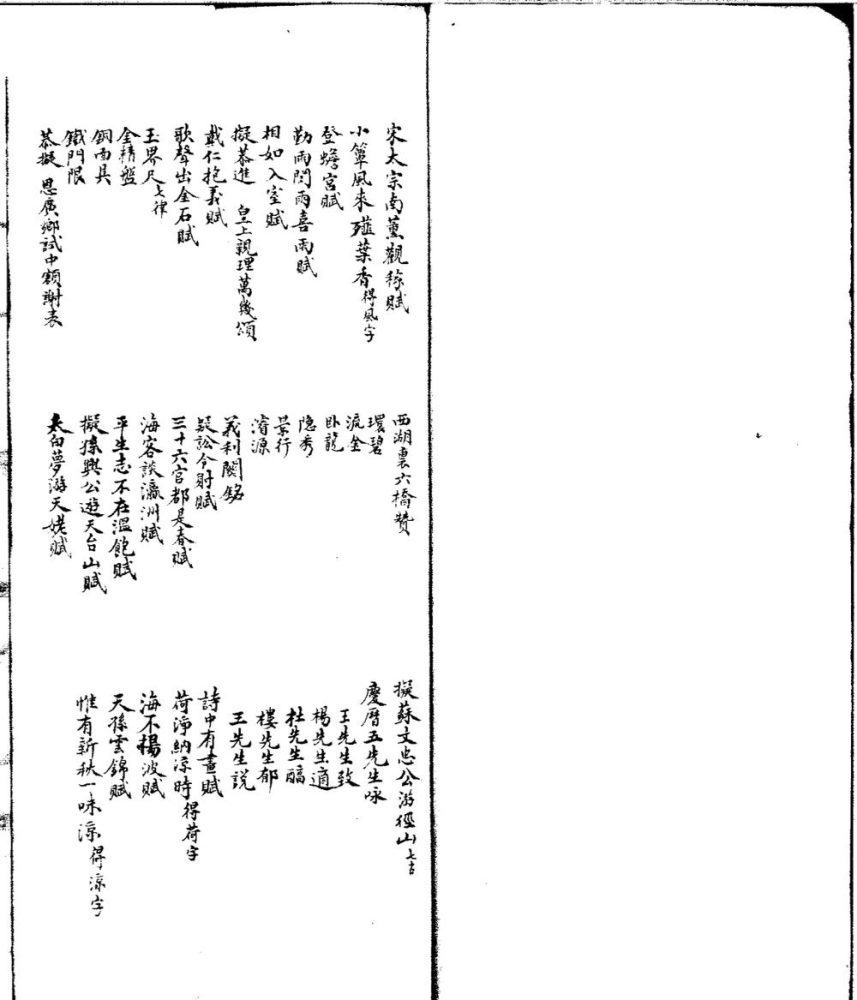 宋太宗南薰觀稼賦
小簟風來殖葉香得風字
登蟾宮賦
勤雨閔雨喜雨賦
相如入室賦
擬恭進 皇上親理萬幾頌
戴仁抱義賦
歌聲出金石賦
玉界尺七律
金精盤
銅面具
鐵門限
恭擬 恩廣鄉試中額謝表
西湖裏六橋贊
環碧
流金
臥龍
隱秀
景行
濬源
義利關銘
疑訟令射賦
三十六宮都是春賦
海客談瀛洲賦
平生志不在溫飽賦
擬孫興公遊天台山賦
太白夢游天姥賦
擬蘇文忠公游徑山七古
慶曆五先生咏
王先生致
楊先生適
杜先生醕
樓先生郁
王先生説
詩中有畫賦
荷淨納涼時得荷字
海不揚波賦
天孫雲錦賦
惟有新秋一味涼得涼字